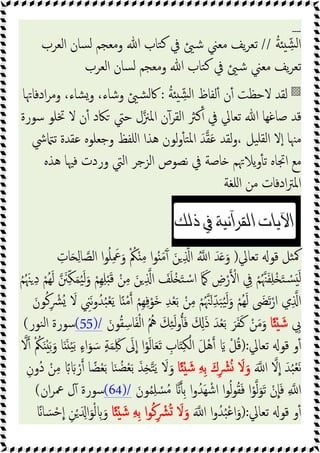 الشِّيئةُ // تعريف معني شيئ في كتاب الله ومعجم لسان العرب
تعريف معني شيئ في كتاب الله ومعجم لسان العرب
لقد لاحظت أن ألفاظ الشِّيئةُ: كالشيئ وشاء، ويشاء، ومرادفاتها
قد صاغها الله تعالي في أكثر القرآن المنَّزل حتي تكاد أن لا تخلو سورة
منها إلا القليل ،ولقد عَقَّدَ المتأولون هذا اللفظ وجعلوه عقدة تتماشي
مع اتجاه تأويلاتهم خاصة في نصوص الزجر التي وردت فيها هذه
المترادفات من اللغة
الآيات القرآنية في ذلك
كمثل قوله تعالي( وَعَدَ اللَّهُ الَّذِينَ آمَنُوا مِنْكُمْ وَعَمِلُوا الصَّالِحَاتِ
لَيَسْتَخْلِفَنَّهُمْ فِي الْأَرْضِ كَمَا اسْتَخْلَفَ الَّذِينَ مِنْ قَبْلِهِمْ وَلَيُمَكِّنَنَّ لَهُمْ دِينَهُمُ
الَّذِي ارْتَضَى لَهُمْ وَلَيُبَدِّلَنَّهُمْ مِنْ بَعْدِ خَوْفِهِمْ أَمْنًا يَعْبُدُونَنِي لَا يُشْرِكُونَ
بِي شَيْئًا وَمَنْ كَفَرَ بَعْدَ ذَلِكَ فَأُولَئِكَ هُمُ الْفَاسِقُونَ (55)/سورة النور)
أو قوله تعالي:(قُلْ يَا أَهْلَ الْكِتَابِ تَعَالَوْا إِلَى كَلِمَةٍ سَوَاءٍ بَيْنَنَا وَبَيْنَكُمْ أَلَّا
نَعْبُدَ إِلَّا اللَّهَ وَلَا نُشْرِكَ بِهِ شَيْئًا وَلَا يَتَّخِذَ بَعْضُنَا بَعْضًا أَرْبَابًا مِنْ دُونِ
اللَّهِ فَإِنْ تَوَلَّوْا فَقُولُوا اشْهَدُوا بِأَنَّا مُسْلِمُونَ (64)/سورة آل عمران)
أو قوله تعالي:(وَاعْبُدُوا اللَّهَ وَلَا تُشْرِكُوا بِهِ شَيْئًا وَبِالْوَالِدَيْنِ إِحْسَانًا